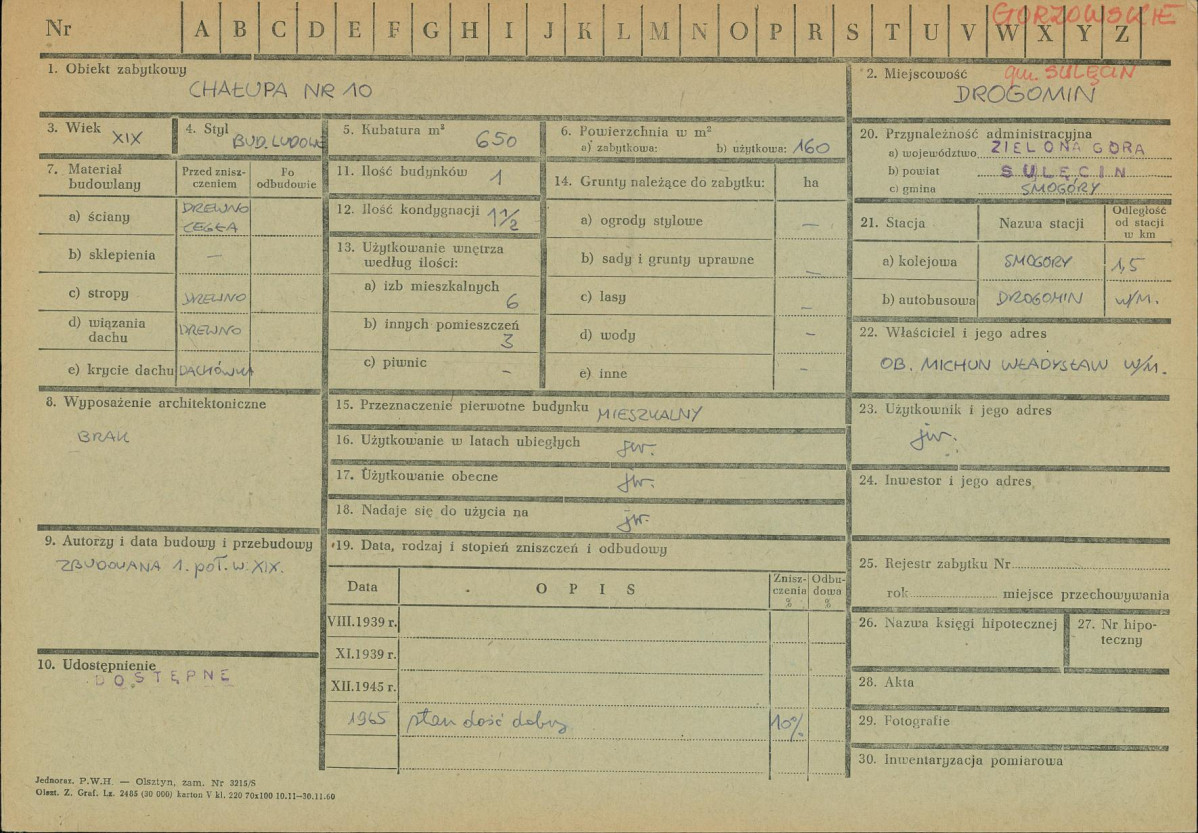 GORZOWSKIE
Nr A B C D E F G H I J K L M N O P R S T U V W X Y Z
1. Obiekt zabytkowy
CHAŁUPA NR 10
2. Miejscowość gm. SULĘCIN
DROGOMIN
3. Wiek XIX
4. Styl BUD. LUDOWE
5. Kubatura m² 650
6. Powierzchnia w m²
a) zabytkowa: b) użytkowa: 160
7. Materiał budowlany
Przed znisz-
czeniem
Po
odbudowie
a) ściany DREWNO
CEGŁA
b) sklepienia —
c) stropy DREWNO
d) wiązania
dachu DREWNO
e) krycie dachu DACHÓWKA
8. Wyposażenie architektoniczne
BRAK
9. Autorzy i data budowy i przebudowy
ZBUDOWANA 1. POŁ. W. XIX.
10. Udostępnienie
DOSTĘPNE
11. Ilość budynków 1
12. Ilość kondygnacji 1 1/2
13. Użytkowanie wnętrza
według ilości:
a) izb mieszkalnych 6
b) innych pomieszczeń 3
c) piwnic –
14. Grunty należące do zabytku: ha
a) ogrody stylowe —
b) sady i grunty uprawne —
c) lasy —
d) wody –
e) inne –
15. Przeznaczenie pierwotne budynku MIESZKALNY
16. Użytkowanie w latach ubiegłych jw.
17. Użytkowanie obecne jw.
18. Nadaje się do użycia na jw.
19. Data, rodzaj i stopień zniszczeń i odbudowy
Data O P I S Znisz-
czenia
% Odbu-
dowa
%
VIII.1939 r.
XI.1939 r.
XII.1945 r.
1965 stan dość dobry 10%
20. Przynależność administracyjna
a) województwo ZIELONA GÓRA
b) powiat SULĘCIN
c) gmina SMOGÓRY
21. Stacja Nazwa stacji Odległość
od stacji
w km
a) kolejowa SMOGÓRY 1,5
b) autobusowa DROGOMIN w/m.
22. Właściciel i jego adres
OB. MICHUN WŁADYSŁAW w/m.
23. Użytkownik i jego adres
jw.
24. Inwestor i jego adres
25. Rejestr zabytku Nr
rok miejsce przechowywania
26. Nazwa księgi hipotecznej
27. Nr hipo-
teczny
28. Akta
29. Fotografie
30. Inwentaryzacja pomiarowa
Jednoraz. P.W.H. — Olsztyn, zam. Nr 3215/S
Olszt. Z. Graf. Lz. 2485 (30 000) karton V kl. 220 70x100 10.11—30.11.60